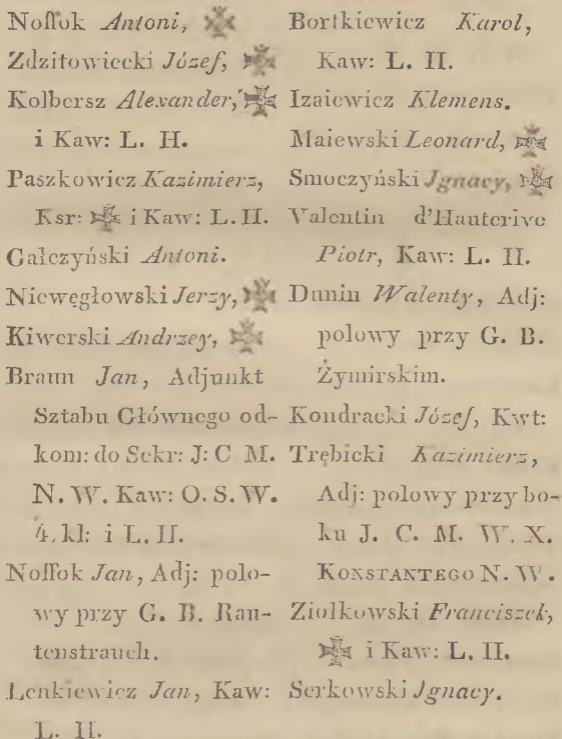 Noſſok Antoni,
Zdzitowiecki Józef,
Kolbersz Alexander,
i Kaw: L. H.
Paszkowicz Kazimierz,
Ksr: i Kaw: L. H.
Gałczyński Antoni.
Niewęgłowski Jerzy,
Kiwerski Andrzey,
Braun Jan, Adjunkt
Sztabu Głównego od-
kom: do Sekr: J: C M.
N. W. Kaw: O. S. W.
4. kl: i L. H.
Noſſok Jan, Adj: polo-
wy przy G. B. Rau-
tenstrauch.
Lenkiewicz Jan, Kaw:
L. H.
Bortkiewicz Karol,
Kaw: L. H.
Izaiewicz Klemens.
Maiewski Leonard,
Smoczyński Jgnacy,
Valentin d'Hauterive
Piotr, Kaw: L. H.
Dunin Walenty, Adj:
polowy przy G. B.
Żymirskim.
Kondracki Józef, Kwt:
Trębicki Kazimierz,
Adj: polowy przy bo-
ku J. C. M. W. X.
KONSTANTEGO N. W.
Ziolkowski Franciszek,
i Kaw: L. H.
Serkowski Jgnacy.